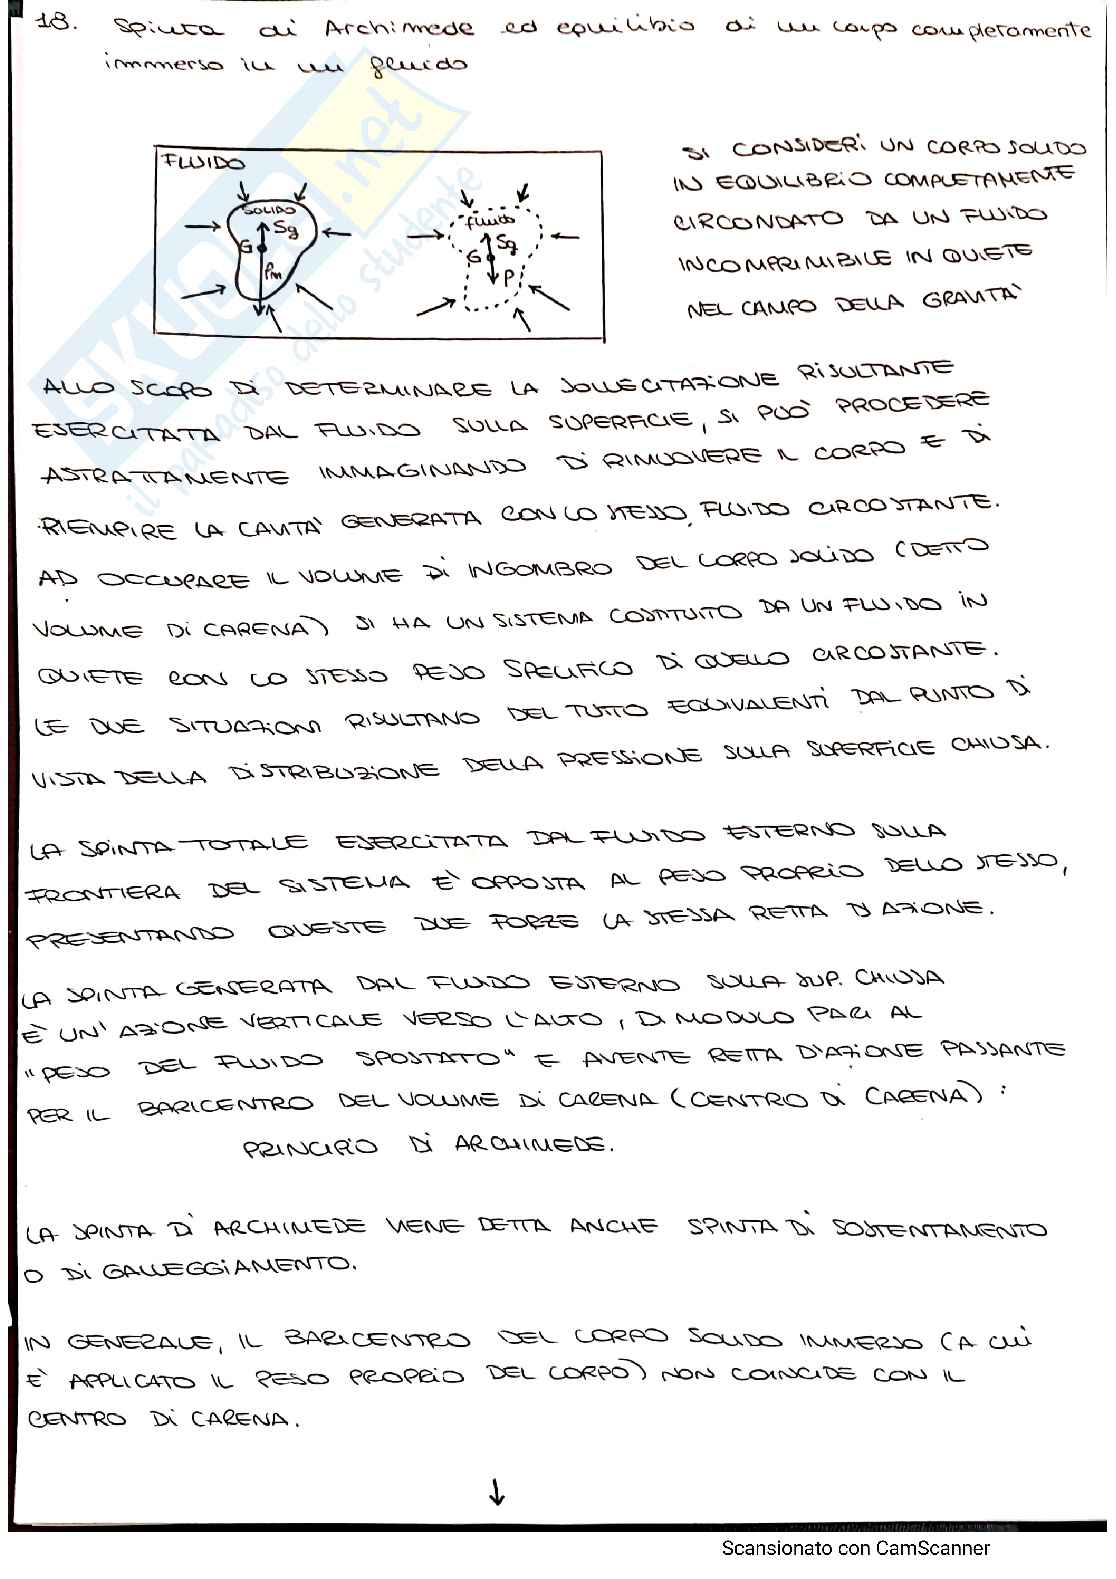 18. Spinta di Archimede ed equilibrio di un corpo completamente
immerso in un fluido
FLUIDO
SOLIDO
Sg
G
Pm
fluido
Sg
G
P
SI CONSIDERI UN CORPO SOLIDO
IN EQUILIBRIO COMPLETAMENTE
CIRCONDATO DA UN FLUIDO
INCOMPRIMIBILE IN QUIETE
NEL CAMPO DELLA GRAVITA'
ALLO SCOPO DI DETERMINARE LA SOLLECITAZIONE RISULTANTE
ESERCITATA DAL FLUIDO SULLA SUPERFICIE, SI PUÒ PROCEDERE
ASTRATTAMENTE IMMAGINANDO DI RIMUOVERE IL CORPO E DI
RIEMPIRE LA CAVITA' GENERATA CON LO STESSO FLUIDO CIRCOSTANTE.
AD OCCUPARE IL VOLUME DI INGOMBRO DEL CORPO SOLIDO (DETTO
VOLUME DI CARENA) SI HA UN SISTEMA COSTITUITO DA UN FLUIDO IN
QUIETE CON LO STESSO PESO SPECIFICO DI QUELLO CIRCOSTANTE.
LE DUE SITUAZIONI RISULTANO DEL TUTTO EQUIVALENTI DAL PUNTO DI
VISTA DELLA DISTRIBUZIONE DELLA PRESSIONE SULLA SUPERFICIE CHIUSA.
LA SPINTA TOTALE ESERCITATA DAL FLUIDO ESTERNO SULLA
FRONTIERA DEL SISTEMA È OPPOSTA AL PESO PROPRIO DELLO STESSO,
PRESENTANDO QUESTE DUE FORZE LA STESSA RETTA D'AZIONE.
LA SPINTA GENERATA DAL FLUIDO ESTERNO SULLA SUP. CHIUSA
È UN'AZIONE VERTICALE VERSO L'ALTO, DI MODULO PARI AL
"PESO DEL FLUIDO SPOSTATO" E AVENTE RETTA D'AZIONE PASSANTE
PER IL BARICENTRO DEL VOLUME DI CARENA (CENTRO DI CARENA) :
PRINCIPIO DI ARCHIMEDE.
LA SPINTA DI ARCHIMEDE VIENE DETTA ANCHE SPINTA DI SOSTENTAMENTO
O DI GALLEGGIAMENTO.
IN GENERALE, IL BARICENTRO DEL CORPO SOLIDO IMMERSO (A CUI
È APPLICATO IL PESO PROPRIO DEL CORPO) NON COINCIDE CON IL
CENTRO DI CARENA.
SKUOLA.net
il paradiso dello studente
Scansionato con CamScanner